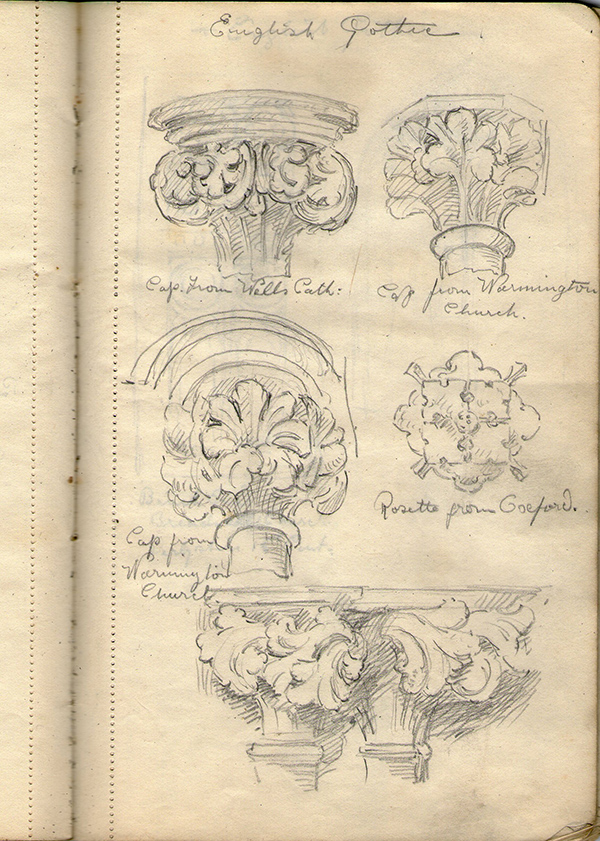 English Gothic
Cap. from Wells Cath:
Cap from Warmington
Church.
Rosette from Oxford.
Cap from
Warmington
Church